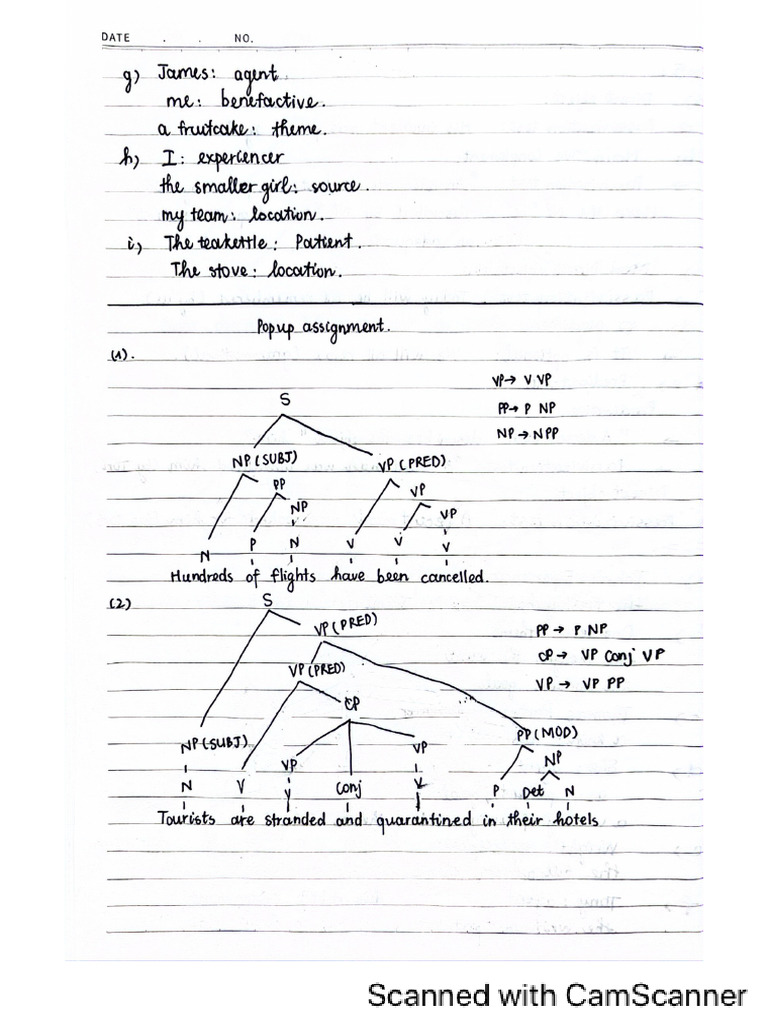 DATE . . NO.
g) James: agent
me: benefactive.
a fruitcake: theme.
h) I: experiencer
the smaller girl: source.
my team: location.
i) The teakettle: Patient.
The stove: location.
Popup assignment.
(1).
VP→ V VP
S
PP→ P NP
NP → NPP
NP (SUBJ) VP (PRED)
PP VP
NP VP
N P N V V V
Hundreds of flights have been cancelled.
(2) S
VP (PRED)
PP → P NP
CP → VP Conj VP
VP (PRED)
VP → VP PP
CP
PP (MOD)
NP (SUBJ) VP VP NP
N V V Conj V P Det N
Tourists are stranded and quarantined in their hotels
Scanned with CamScanner